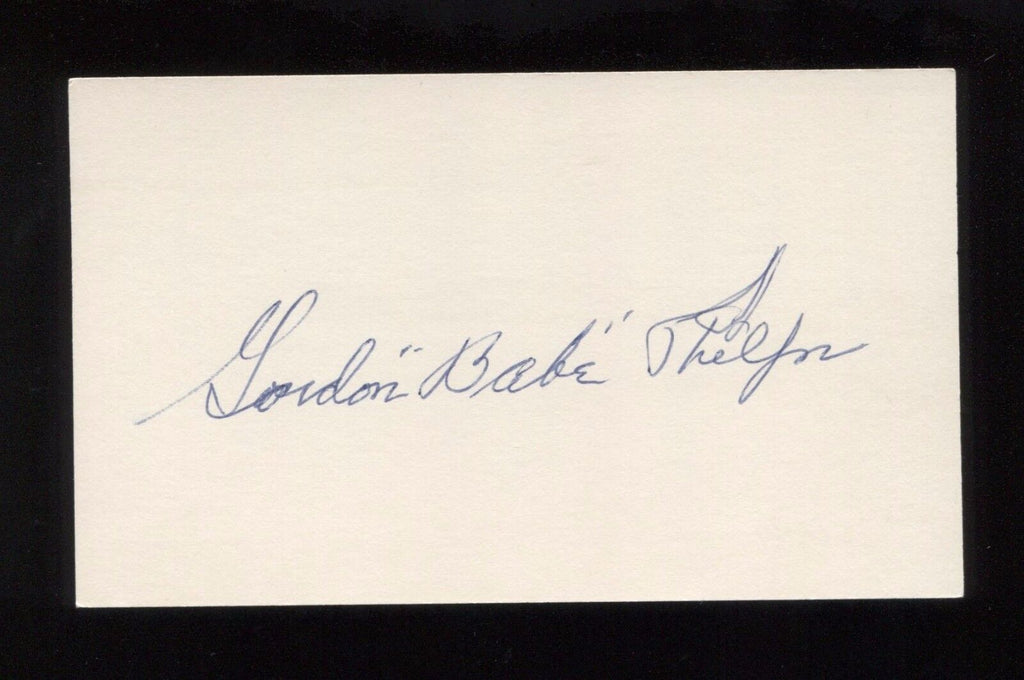 Gordon "Babe" Phelps